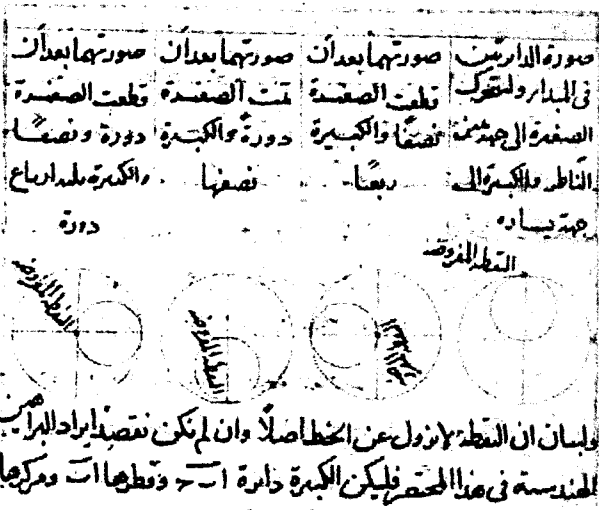 صورة الدائرتين
في المبدا ولتتحرك
الصغيرة الى جهة يمين
الناظر والكبيرة الى
جهة يساره
صورتهما بعد أن
قطعت الصغيرة
نصفًا والكبيرة
ربعًا
صورتهما بعد أن
تمت الصغيرة
دورةً والكبيرة
نصفها
صورتهما بعد أن
قطعت الصغيرة
دورة ونصفًا
والكبيرة ثلثة ارباع
دورة
النقطة المفروضة
النقطة المفروضة
النقطة المفروضة
ولبيان ان النقطة لا تزول عن الخط اصلًا وان لم نكن نقصد ايراد البراهين
الهندسية في هذا المختصر فليكن الكبيرة دايرة ا ب ج وقطرها ا ب ومركزها